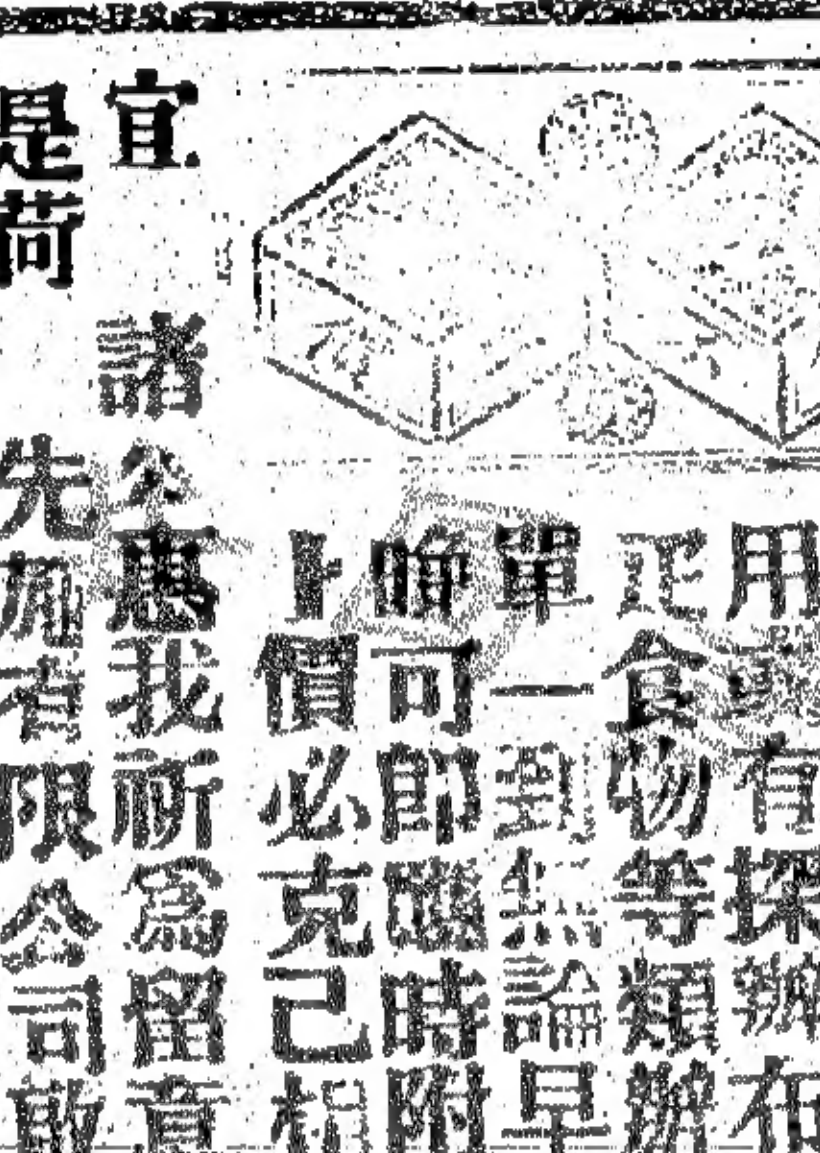 用有採辦布
疋食物等類辦
單一到無論早
晚可即時附
上價必克己相
宜諸公惠我祈為留意
是荷先施有限公司啟